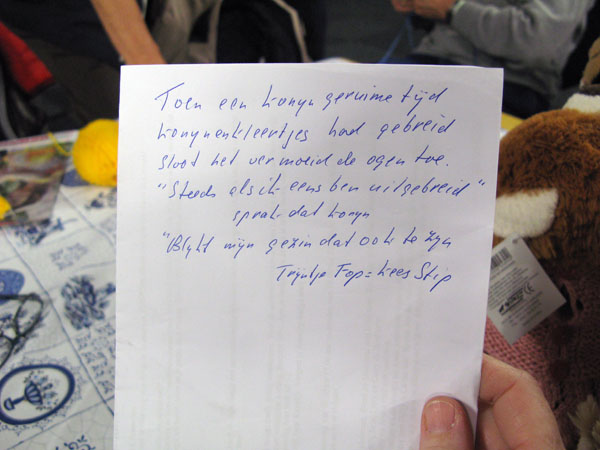 Toen een konyn geruime tijd
konynenkleertjes had gebreid
sloot het vermoeid de ogen toe.
"Steeds als ik eens ben uitgebreid"
sprak dat konyn
"Blykt mijn gezin dat ook te zyn
Tryntje Fop = Kees Stip